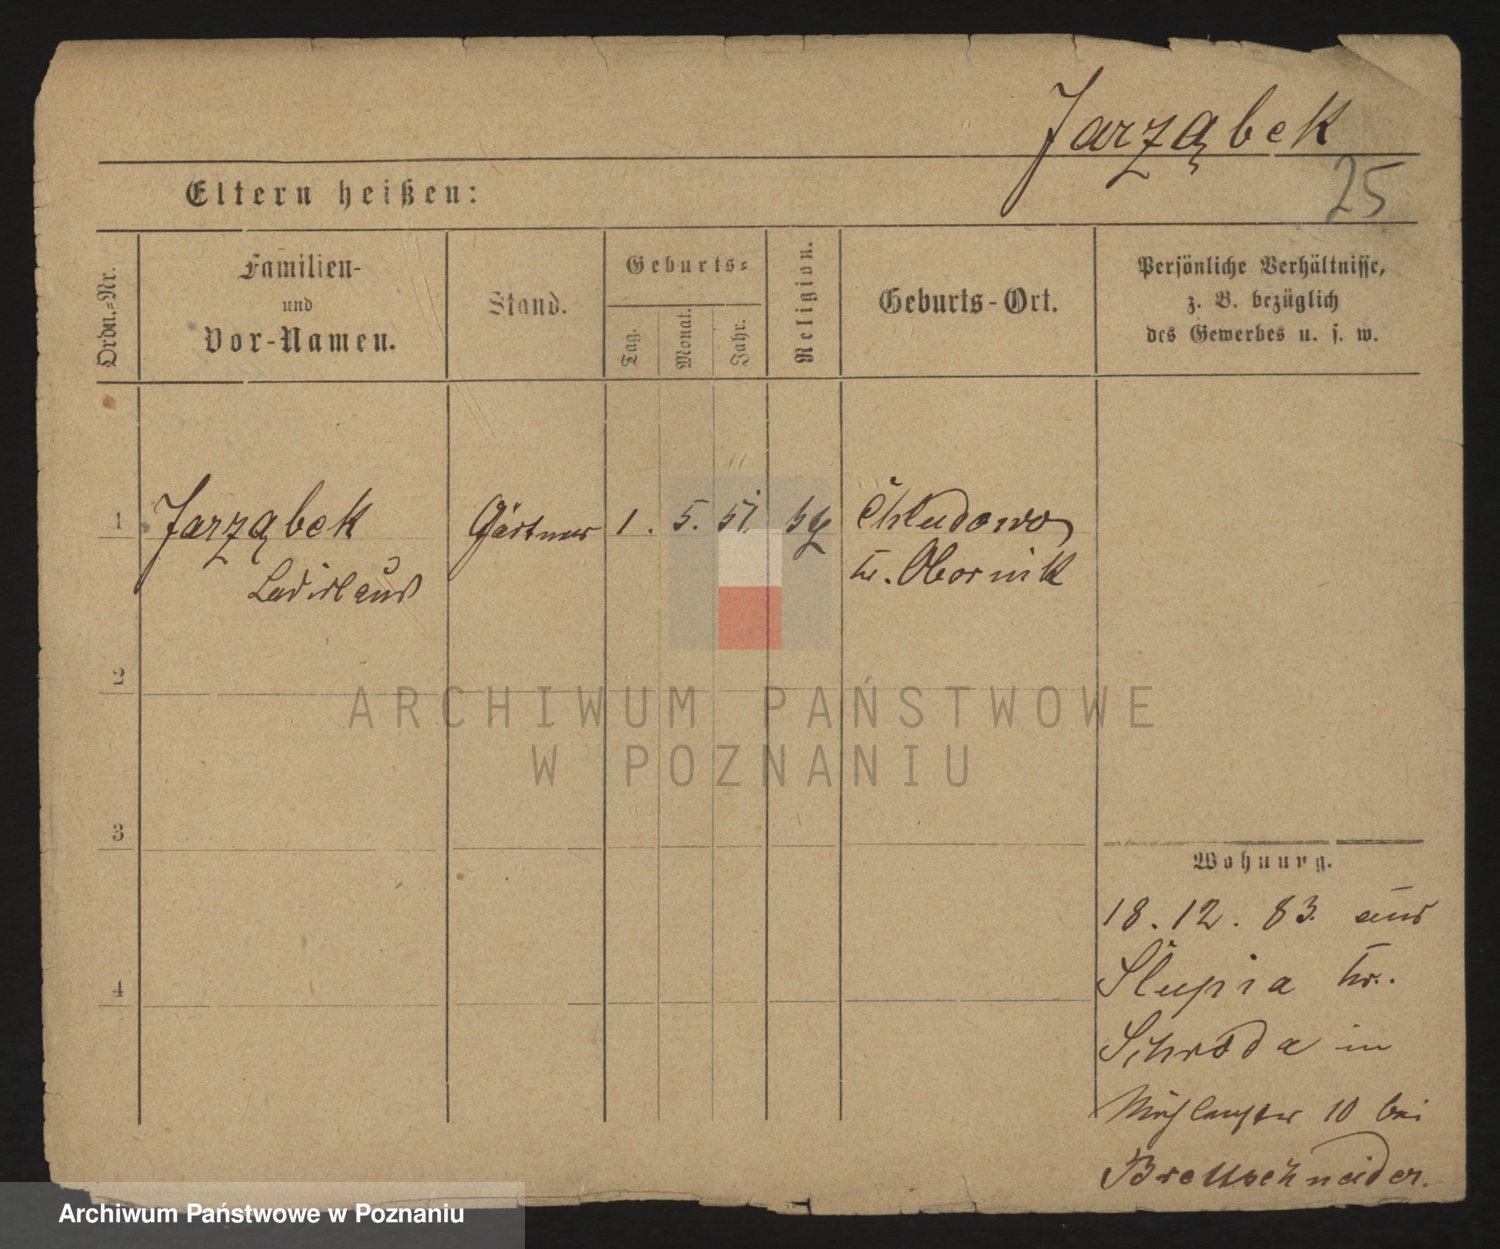 Jarząbek
25
Eltern heißen:
Ordn.-Nr.
Familien-
und
Vor-Namen.
Stand.
Geburts-
Tag.
Monat.
Jahr.
Religion.
Geburts-Ort.
Persönliche Verhältnisse,
z. B. bezüglich
des Gewerbes u. s. w.
1 Jarząbek Gärtner 1. 5. 51. Chludowo
Ladislaus Kr. Obornik
2
3
4
Wohnung.
18. 12. 83. aus
Slupia Kr.
Schroda in
10 bei
Brettschneider.
ARCHIWUM PAŃSTWOWE
W POZNANIU
Archiwum Państwowe w Poznaniu